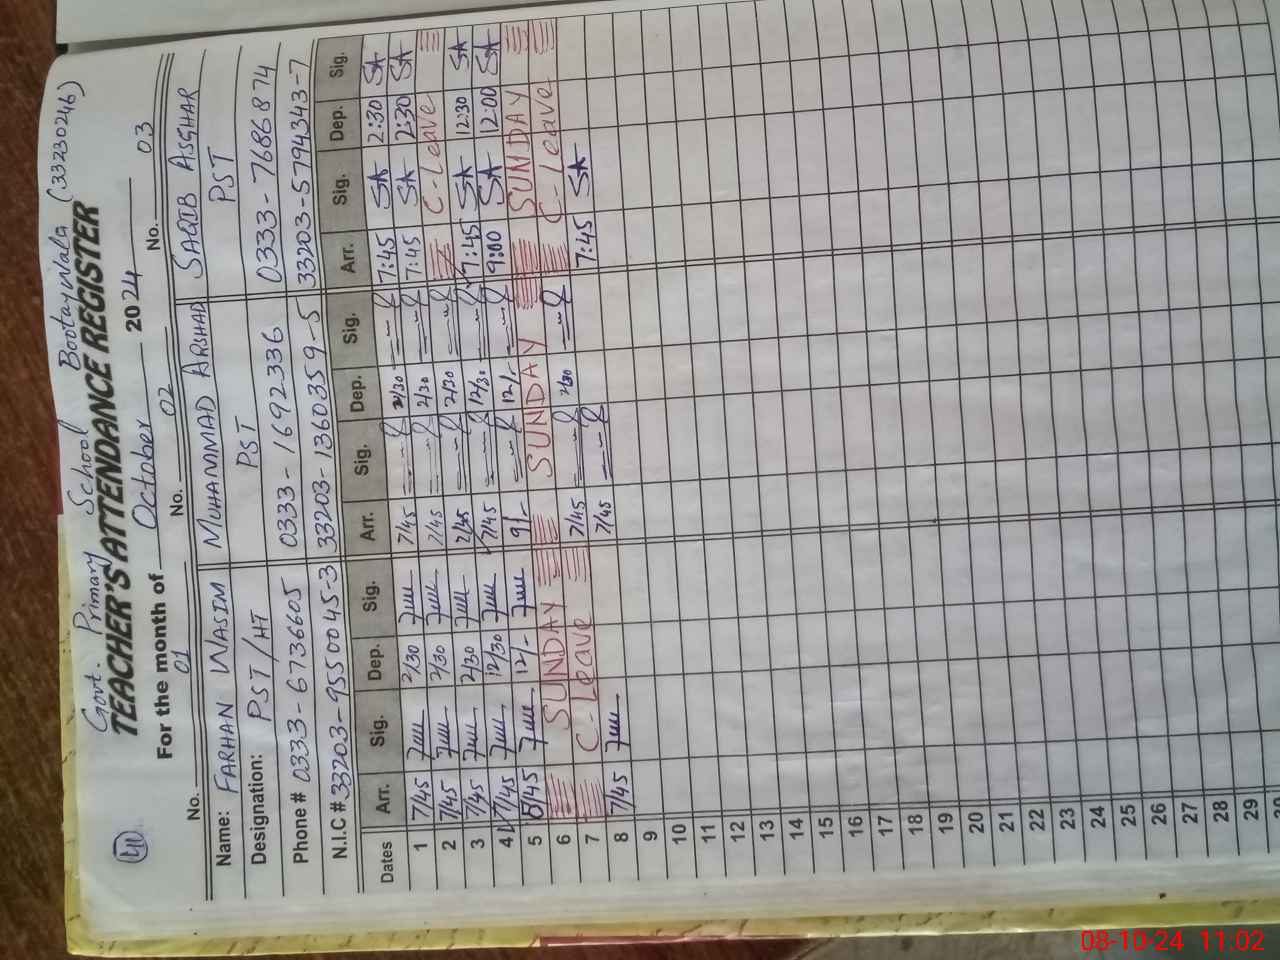 Govt. Primary School Bootaywala (33230246)
TEACHER'S ATTENDANCE REGISTER
For the month of October 2024
No. 01 No. 02 No. 03
Name: FARHAN WASIM MUHAMMAD ARSHAD SAQIB ASGHAR
Designation: PST/HT PST PST
Phone # 0333-6736605 0333-1692336 0333-7686874
N.I.C # 33203-9550045-3 33203-1360359-5 33203-5794343-7
Dates Arr. Sig. Dep. Sig. Arr. Sig. Dep. Sig. Arr. Sig. Dep. Sig.
1 7/45 2/30 7/45 2/30 7:45 SA 2:30 SA
2 7/45 2/30 7/45 2/30 7:45 SA 2:30 SA
3 7/45 2/30 7/45 2/30 C-Leave
4 7/45 12/30 7/45 12/30 7:45 SA 12:30 SA
5 12/- 9/- 12/- 9:00 SA 12:00 SA
6 SUNDAY SUNDAY SUNDAY
7 C-Leave 7/45 2/30 C-Leave
8 7/45 7/45 7:45 SA
9
10
11
12
13
14
15
16
17
18
19
20
21
22
23
24
25
26
27
28
29
08-10-24 11.02